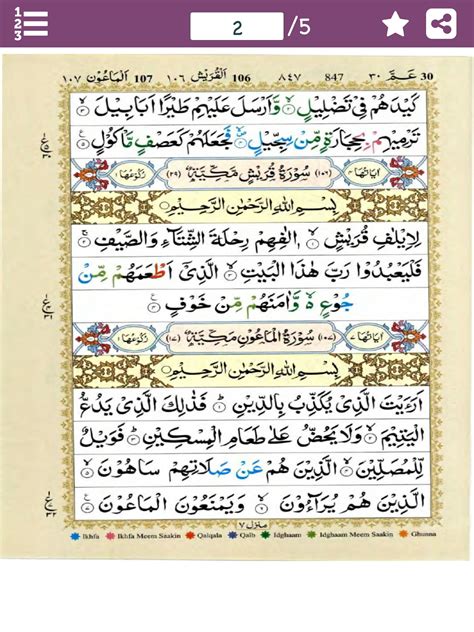 1
2
3
2 /5
١٠٧ اَلْمَاعُوْن 107 ١٠٦ اَلْقُرَيْش 106 ٨٤٧ 847 عَـمَّ ٣٠ 30
كَيْدَهُمْ فِيْ تَضْلِيْلٍ ۙ٢ وَّاَرْسَلَ عَلَيْهِمْ طَيْرًا اَبَابِيْلَ ۙ٣
تَرْمِيْهِمْ بِحِجَارَةٍ مِّنْ سِجِّيْلٍ ۙ٤ فَجَعَلَهُمْ كَعَصْفٍ مَّاْكُوْلٍ ۧ٥
اٰيَاتُهَا ٤ (١٠٦) سُوْرَةُ قُرَيْشٍ مَكِّيَّةٌ (٢٩) رُكُوْعُهَا ١
بِسْمِ اللّٰهِ الرَّحْمٰنِ الرَّحِيْمِ
لِاِيْلٰفِ قُرَيْشٍ ۙ١ اٖلٰفِهِمْ رِحْلَةَ الشِّتَآءِ وَالصَّيْفِ ۚ٢
فَلْيَعْبُدُوْا رَبَّ هٰذَا الْبَيْتِ ۙ٣ الَّذِيْٓ اَطْعَمَهُمْ مِّنْ
جُوْعٍ ۙ۬ وَّاٰمَنَهُمْ مِّنْ خَوْفٍ ۧ٤
اٰيَاتُهَا ٧ (١٠٧) سُوْرَةُ الْمَاعُوْنِ مَكِّيَّةٌ (١٧) رُكُوْعُهَا ١
بِسْمِ اللّٰهِ الرَّحْمٰنِ الرَّحِيْمِ
اَرَءَيْتَ الَّذِيْ يُكَذِّبُ بِالدِّيْنِ ؕ١ فَذٰلِكَ الَّذِيْ يَدُعُّ
الْيَتِيْمَ ۙ٢ وَلَا يَحُضُّ عَلٰى طَعَامِ الْمِسْكِيْنِ ؕ٣ فَوَيْلٌ
لِّلْمُصَلِّيْنَ ۙ٤ الَّذِيْنَ هُمْ عَنْ صَلَاتِهِمْ سَاهُوْنَ ۙ٥
الَّذِيْنَ هُمْ يُرَآءُوْنَ ۙ٦ وَيَمْنَعُوْنَ الْمَاعُوْنَ ۧ٧
مَنْزِل ٧
Ikhfa Ikhfa Meem Saakin Qalqala Qalb Idghaam Idghaam Meem Saakin Ghunna